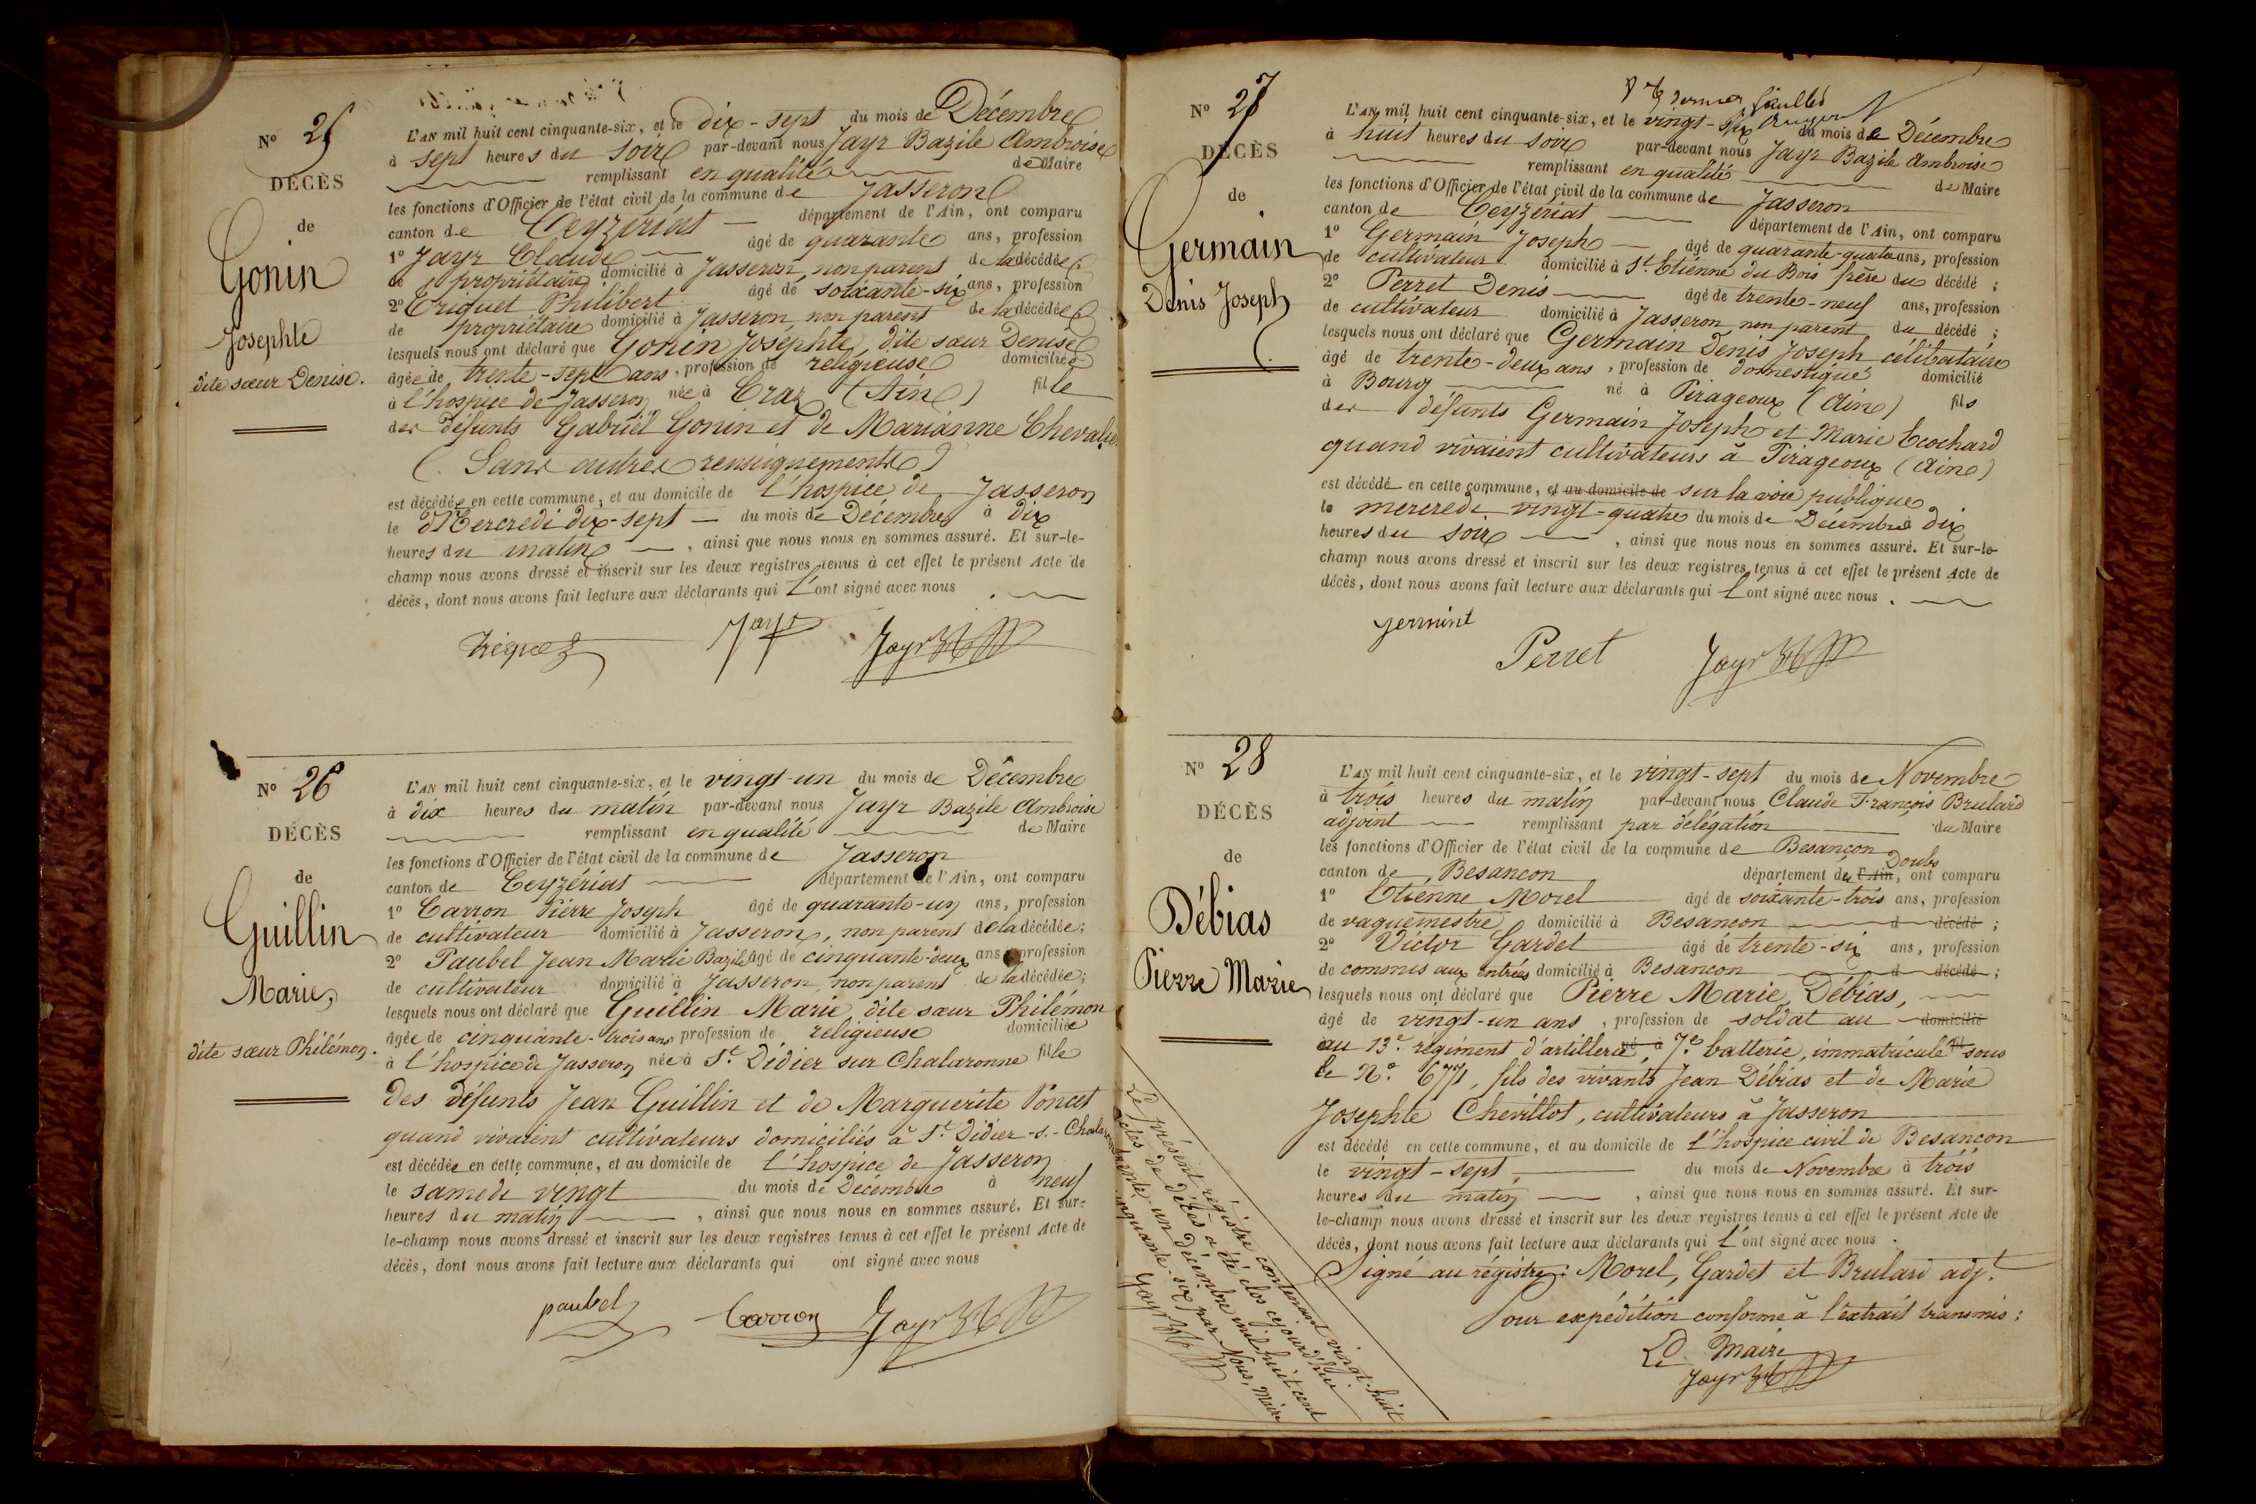 N° 25
DÉCÈS
de
Gonin
Josephte
dite sœur Denise.
L'AN mil huit cent cinquante-six, et le dix-sept du mois de Décembre
à sept heures du soir par-devant nous Jayr Bazile Ambroise
remplissant en qualité de Maire
les fonctions d'Officier de l'état civil de la commune de Jasseron
canton de Ceyzériat département de l'Ain, ont comparu
1° Jayr Claude âgé de quarante ans, profession
de propriétaire domicilié à Jasseron, non parent de la décédée;
2° Triquet Philibert âgé de soixante-six ans, profession
de propriétaire domicilié à Jasseron, non parent de la décédée;
lesquels nous ont déclaré que Gonin Josephte, dite sœur Denise
âgée de trente-sept ans, profession de religieuse domiciliée
à l'hospice de Jasseron née à Cras (Ain) fille
des défunts Gabriël Gonin et de Marianne Chevalier
(Sans autres renseignements)
est décédée en cette commune, et au domicile de l'hospice de Jasseron
le Mercredi dix-sept du mois de Décembre à dix
heures du matin, ainsi que nous nous en sommes assuré. Et sur-le-
champ nous avons dressé et inscrit sur les deux registres tenus à cet effet le présent Acte de
décès, dont nous avons fait lecture aux déclarants qui l'ont signé avec nous.
Triquet Jayr Jayr
N° 26
DÉCÈS
de
Guillin
Marie,
dite sœur Philémon.
L'AN mil huit cent cinquante-six, et le vingt-un du mois de Décembre
à dix heures du matin par-devant nous Jayr Bazile Ambroise
remplissant en qualité de Maire
les fonctions d'Officier de l'état civil de la commune de Jasseron
canton de Ceyzériat département de l'Ain, ont comparu
1° Carron Pierre Joseph âgé de quarante-un ans, profession
de cultivateur domicilié à Jasseron, non parent de la décédée;
2° Paubel Jean Marie Bazile âgé de cinquante-deux ans profession
de cultivateur domicilié à Jasseron, non parent de la décédée;
lesquels nous ont déclaré que Guillin Marie, dite sœur Philémon
âgée de cinquante-trois ans profession de religieuse domiciliée
à l'hospice de Jasseron née à St Didier sur Chalaronne fille
des défunts Jean Guillin et de Marguerite Poncet
quand vivaient cultivateurs domiciliés à St Didier-s.-Chalaronne
est décédée en cette commune, et au domicile de l'hospice de Jasseron
le samedi vingt du mois de Décembre à neuf
heures du matin, ainsi que nous nous en sommes assuré. Et sur-
le-champ nous avons dressé et inscrit sur les deux registres tenus à cet effet le présent Acte de
décès, dont nous avons fait lecture aux déclarants qui ont signé avec nous
paubel Carron Jayr
N° 27
DÉCÈS
de
Germain
Denis Joseph
L'AN mil huit cent cinquante-six, et le vingt-six du mois de Décembre
à huit heures du soir par-devant nous Jayr Bazile Ambroise
remplissant en qualité de Maire
les fonctions d'Officier de l'état civil de la commune de Jasseron
canton de Ceyzériat département de l'Ain, ont comparu
1° Germain Joseph âgé de quarante-quatre ans, profession
de cultivateur domicilié à St Etienne du Bois frère du décédé;
2° Perret Denis âgé de trente-neuf ans, profession
de cultivateur domicilié à Jasseron non parent du décédé;
lesquels nous ont déclaré que Germain Denis Joseph célibataire
âgé de trente-deux ans, profession de domestique domicilié
à Bourg né à Pirageoux (Ain) fils
des défunts Germain Joseph et Marie Ecochard
quand vivaient cultivateurs à Pirageoux (Ain)
est décédé en cette commune, et au domicile de sur la voie publique
le mercredi vingt-quatre du mois de Décembre à dix
heures du soir, ainsi que nous nous en sommes assuré. Et sur-le-
champ nous avons dressé et inscrit sur les deux registres tenus à cet effet le présent Acte de
décès, dont nous avons fait lecture aux déclarants qui l'ont signé avec nous.
germint Perret Jayr
N° 28
DÉCÈS
de
Débias
Pierre Marie
L'AN mil huit cent cinquante-six, et le vingt-sept du mois de Novembre
à trois heures du matin par-devant nous Claude François Brulard
adjoint remplissant par délégation du Maire
les fonctions d'Officier de l'état civil de la commune de Besançon
canton de Besançon département du l'Ain Doubs, ont comparu
1° Etienne Morel âgé de soixante-trois ans, profession
de vaguemestre domicilié à Besançon d décédé;
2° Victor Gardet âgé de trente-six ans, profession
de commis aux entrées domicilié à Besançon d décédé;
lesquels nous ont déclaré que Pierre Marie Débias,
âgé de vingt-un ans, profession de soldat au domicilié
au 13e régiment d'artillerie, né à 7e batterie, immatriculé fil sous
le N° 6771, fils des vivants Jean Débias et de Marie
Josephte Chevillot, cultivateurs à Jasseron
est décédé en cette commune, et au domicile de l'hospice civil de Besançon
le vingt-sept, du mois de Novembre à trois
heures du matin, ainsi que nous nous en sommes assuré. Et sur-
le-champ nous avons dressé et inscrit sur les deux registres tenus à cet effet le présent Acte de
décès, dont nous avons fait lecture aux déclarants qui l'ont signé avec nous.
Signé au régistre: Morel, Gardet et Brulard adjt.
Pour expédition conforme à l'extrait transmis:
Le Maire
Jayr
Le présent régistre contenant vingt-huit
actes de décès a été clos cejourd'hui
trente-un Décembre mil huit cent
cinquante-six par Nous, Maire
Jayr